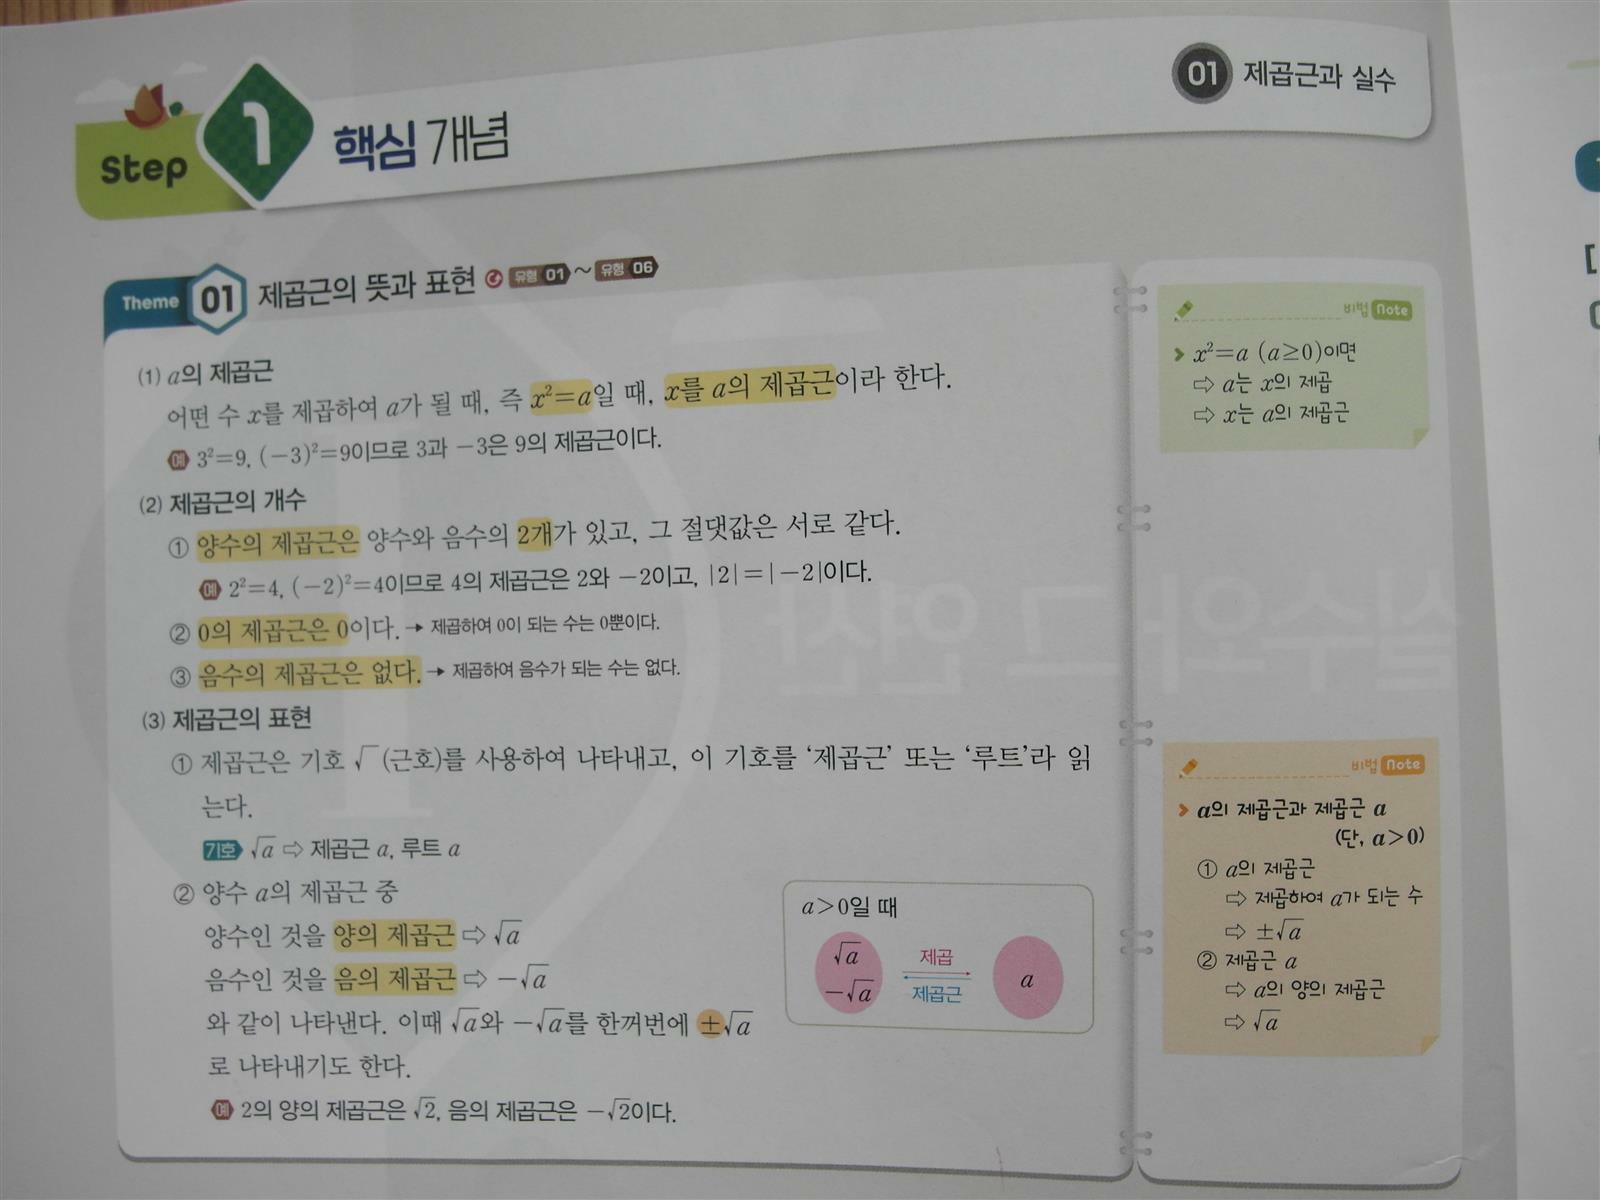 Step 1 핵심 개념
01 제곱근과 실수
Theme 01 제곱근의 뜻과 표현 유형 01 ~ 유형 06
(1) a의 제곱근
어떤 수 x를 제곱하여 a가 될 때, 즉 x²=a일 때, x를 a의 제곱근이라 한다.
예 3²=9, (-3)²=9이므로 3과 -3은 9의 제곱근이다.
(2) 제곱근의 개수
① 양수의 제곱근은 양수와 음수의 2개가 있고, 그 절댓값은 서로 같다.
예 2²=4, (-2)²=4이므로 4의 제곱근은 2와 -2이고, |2|=|-2|이다.
② 0의 제곱근은 0이다. → 제곱하여 0이 되는 수는 0뿐이다.
③ 음수의 제곱근은 없다. → 제곱하여 음수가 되는 수는 없다.
(3) 제곱근의 표현
① 제곱근은 기호 √ (근호)를 사용하여 나타내고, 이 기호를 ‘제곱근’ 또는 ‘루트’라 읽
는다.
기호 √a ⇨ 제곱근 a, 루트 a
② 양수 a의 제곱근 중
양수인 것을 양의 제곱근 ⇨ √a
음수인 것을 음의 제곱근 ⇨ -√a
와 같이 나타낸다. 이때 √a와 -√a를 한꺼번에 ±√a
로 나타내기도 한다.
예 2의 양의 제곱근은 √2, 음의 제곱근은 -√2이다.
a>0일 때
√a
-√a
제곱
제곱근
a
비법 Note
x²=a (a≥0)이면
⇨ a는 x의 제곱
⇨ x는 a의 제곱근
비법 Note
a의 제곱근과 제곱근 a
(단, a>0)
① a의 제곱근
⇨ 제곱하여 a가 되는 수
⇨ ±√a
② 제곱근 a
⇨ a의 양의 제곱근
⇨ √a